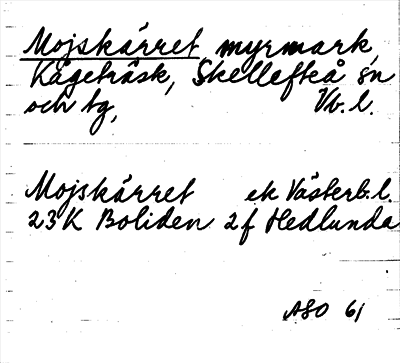 Mojskärret myrmark,
Kågeträsk, Skellefteå sn
och tg, Vb. l.
Mojskärret ek Västerb. l.
23K Boliden 2f Hedlunda
ASO 61